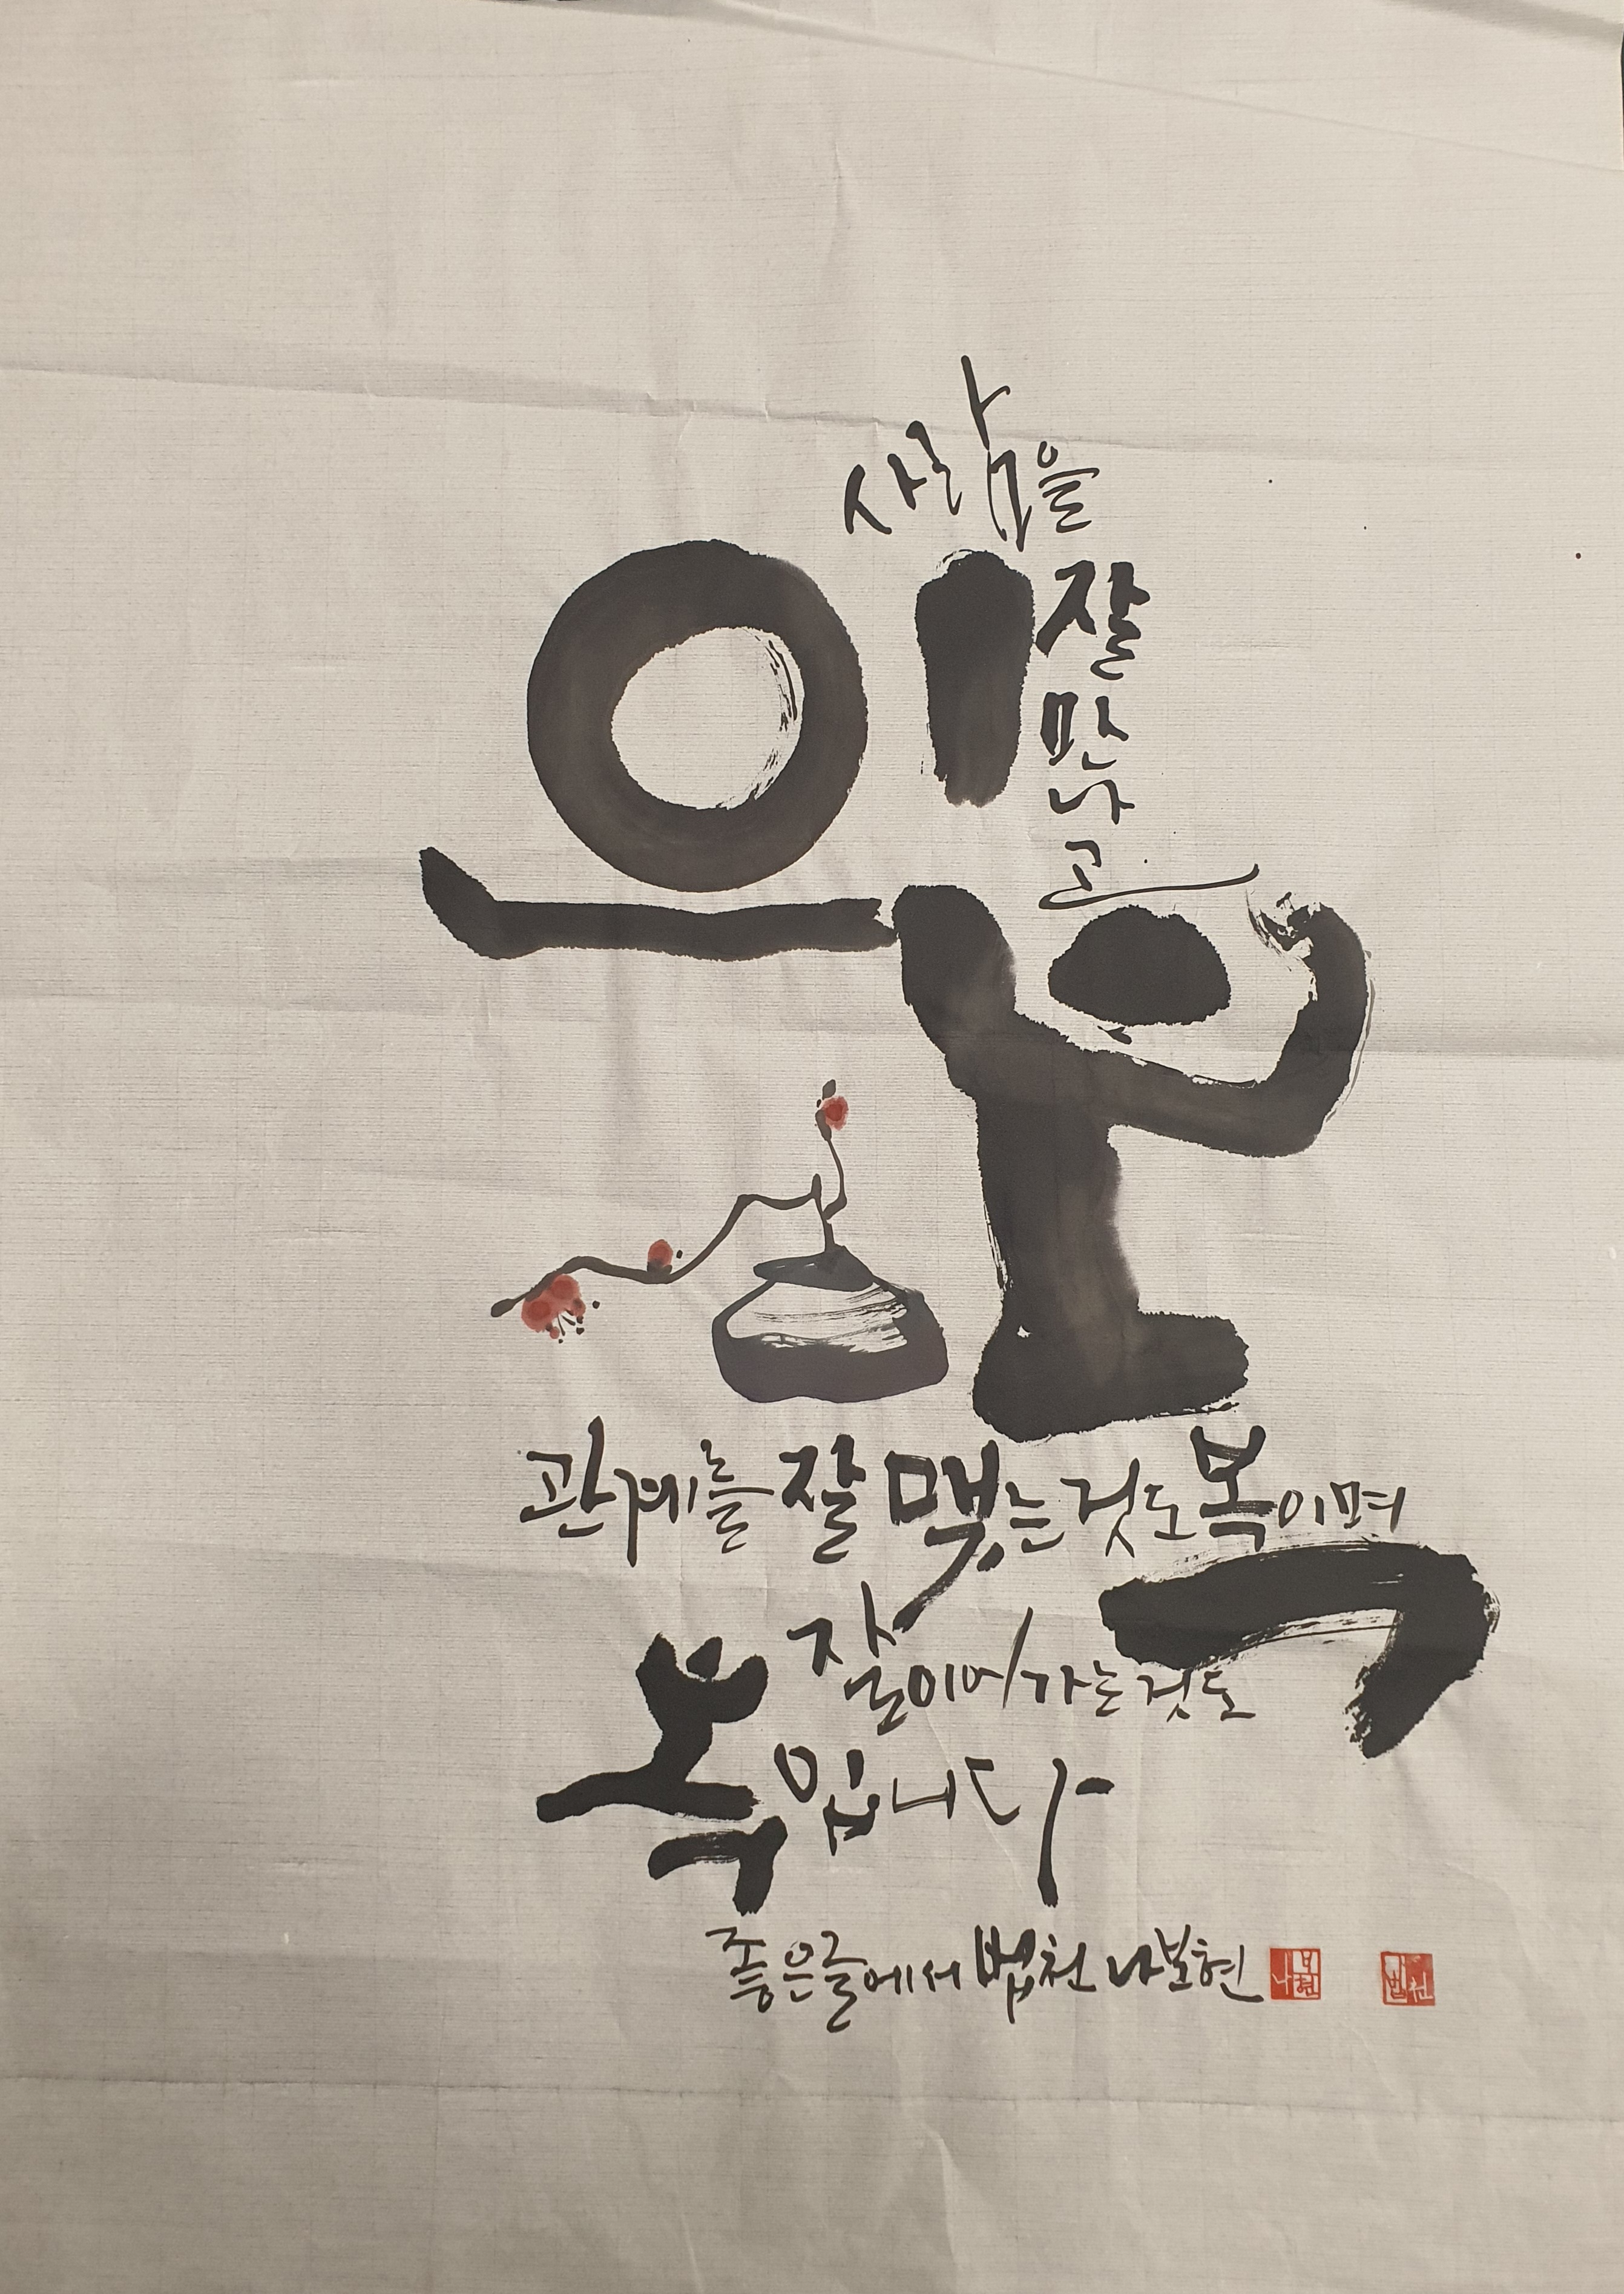 인복
사람을
잘 만나고
관계를 잘 맺는것도 복이며
잘 이어가는것도
복입니다
좋은글에서 법천 나보현
나보현
법천